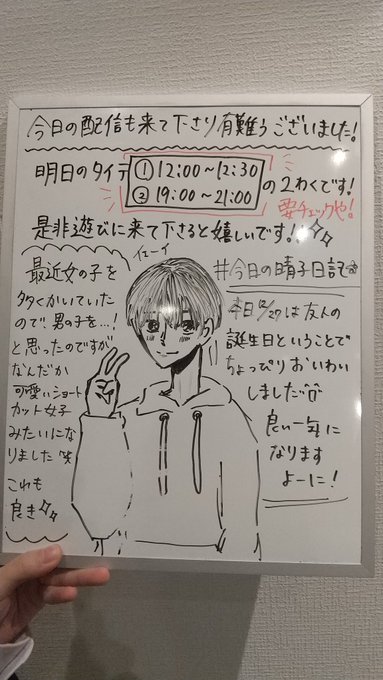 今日の配信も来て下さり有難うございました!
明日のタイテ
① 12:00～12:30
② 19:00～21:00
の2わくです!
要チェックや!
是非遊びに来て下さると嬉しいです!
イェーイ
最近女の子を
多くかいていた
ので 男の子を…!
と思ったのですが
なんだか
可愛いショート
カット女子
みたいにな
りました 笑
これも
良き
#今日の晴子日記
本日12/27は友人の
誕生日ということで
ちょっぴりおいわい
しました
良い一年に
なります
よーに!